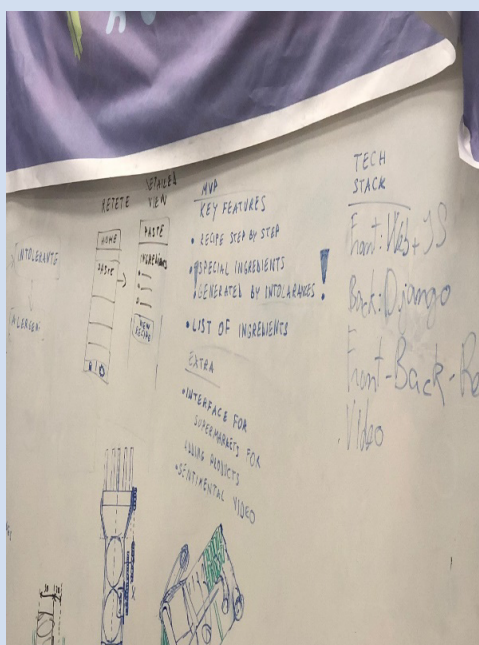 INTOLERANTE
RETETE
HOME
PASTE
DETAILED
VIEW
PASTE
INGREDIENTS
NEW
RECIPE
MVP
KEY FEATURES
• RECIPE STEP BY STEP
• SPECIAL INGREDIENTS
GENERATED BY INTOLARANCES !
• LIST OF INGREDIENTS
EXTRA
• INTERFACE FOR
SUPERMARKETS FOR
PRODUCTS
• SENTIMENTAL VIDEO
TECH
STACK
Front: Web + JS
Back: Django
Front-Back-Re
Video